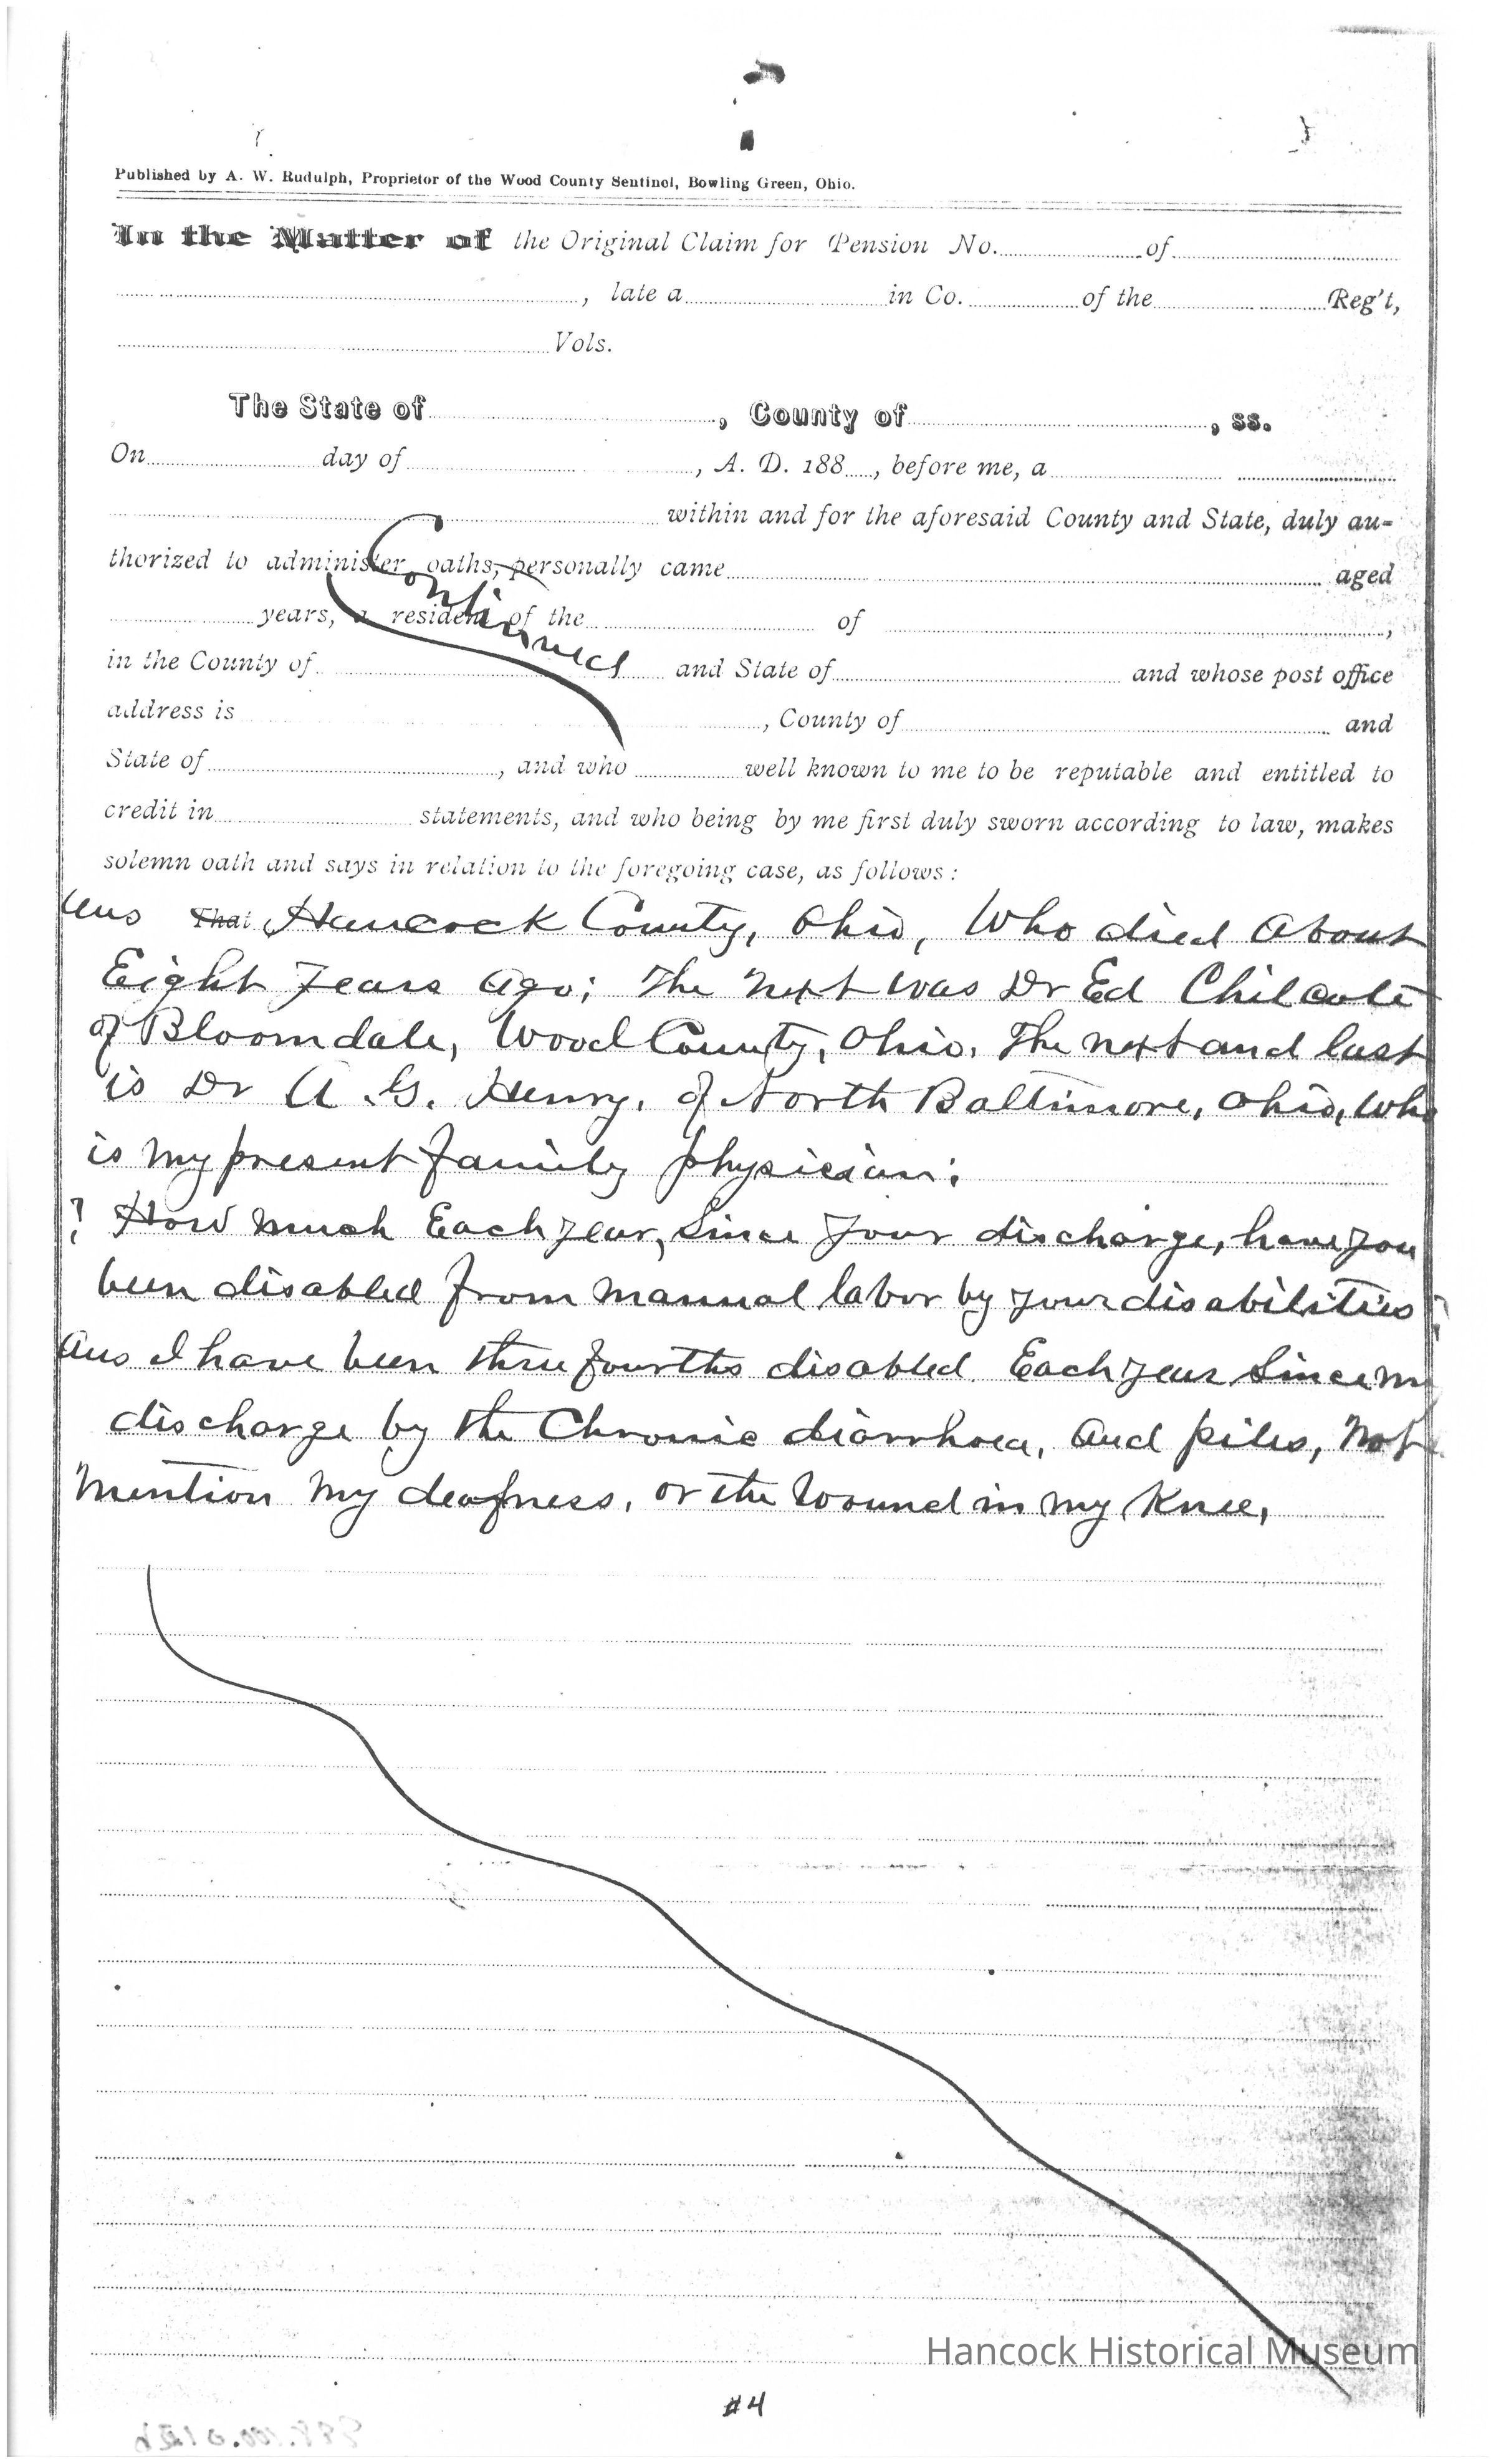 Published by A. W. Rudulph, Proprietor of the Wood County Sentinel, Bowling Green, Ohio.
In the Matter of the Original Claim for Pension No. of
, late a in Co. of the Reg't,
Vols.
The State of , County of , ss.
On day of , A. D. 188 , before me, a
within and for the aforesaid County and State, duly au-
thorized to administer oaths, personally came aged
years, a resident of the of ,
Continued
in the County of and State of and whose post office
address is , County of and
State of , and who well known to me to be reputable and entitled to
credit in statements, and who being by me first duly sworn according to law, makes
solemn oath and says in relation to the foregoing case, as follows:
Ans That Hancock County, Ohio, Who died About
Eight Years Ago; The next was Dr Ed Chilcote
of Bloomdale, Wood County, Ohio. The next and last
is Dr A. G. Henry, of North Baltimore, Ohio, Who
is my present family physician;
? How much Each year, Since your discharge, have you
been disabled from manual labor by your disabilities?
Ans I have been three fourths disabled Each year Since my
discharge by the Chronic diarrhoea, And piles, Not
Mention My deafness, or the Wound in my Knee,
Hancock Historical Museum
#4